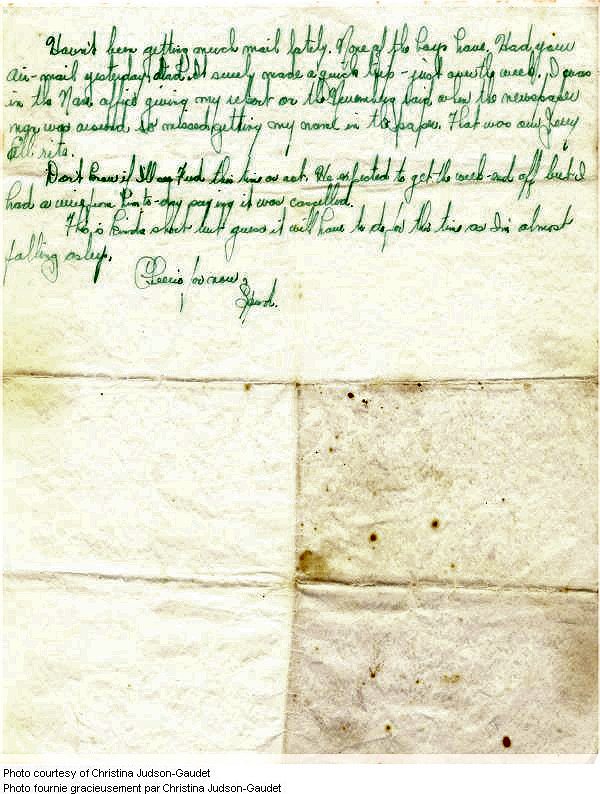 Haven't been getting much mail lately. None of the boys have. Had your
air-mail yesterday and it surely made a quick trip - just over the week. I was
in the Nav. office giving my report on the Nuremberg raid when the newspaper
mgr was around, so missed getting my name in the paper. That was our
Don't know if I'll see Fred this time or not. We expected to get the week-end off but I
had a wire from him to-day saying it was cancelled.
This is kinda short but guess it will have to do for this time as I'm almost
falling asleep.
Cheerio for now,
Photo courtesy of Christina Judson-Gaudet
Photo fournie gracieusement par Christina Judson-Gaudet